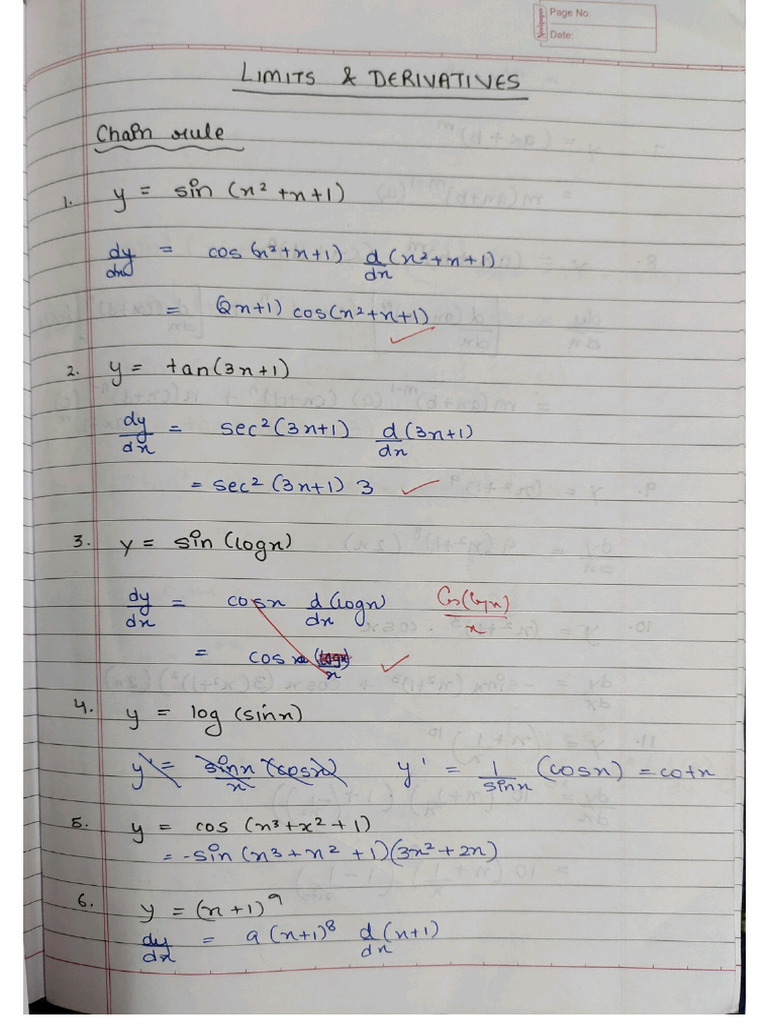 Page No.
Date:
LIMITS & DERIVATIVES
Chain rule
1. y = sin (x² + x + 1)
dy/dx = cos (x² + x + 1) d/dx (x² + x + 1)
= (2x+1) cos(x² + x + 1)
2. y = tan(3x+1)
dy/dx = sec²(3x+1) d/dx (3x+1)
= sec² (3x+1) 3
3. y = sin (logx)
dy/dx = cosx d/dx (logx) Cos(logx)/x
= cos
4. y = log (sinx)
y' = sinx/x (cosx) y' = 1/sinx (cosx) = cotx
5. y = cos (x³ + x² + 1)
= -sin (x³ + x² + 1)(3x² + 2x)
6. y = (x + 1)⁹
dy/dx = 9 (x+1)⁸ d/dx (x+1)